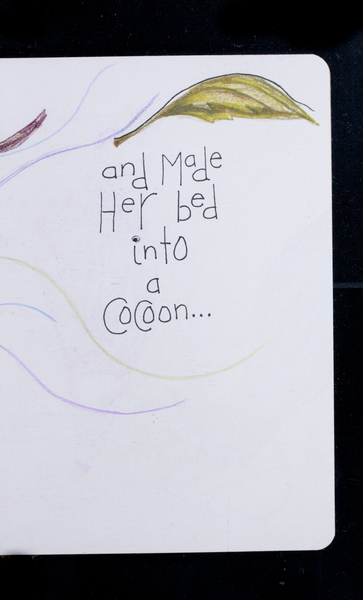 and Made
Her bed
into
a
Cocoon...